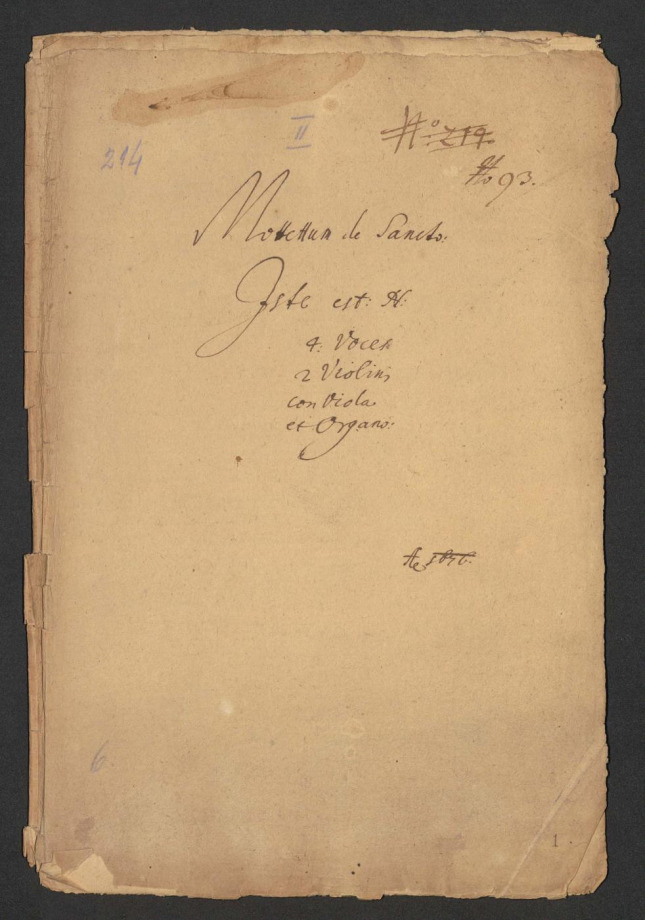 214
II
No. 214.
No 93.
Mottettum de Sancto.
Iste est: N:
4: Voces
2 Violini
con Viola
et Organo:
6.
1